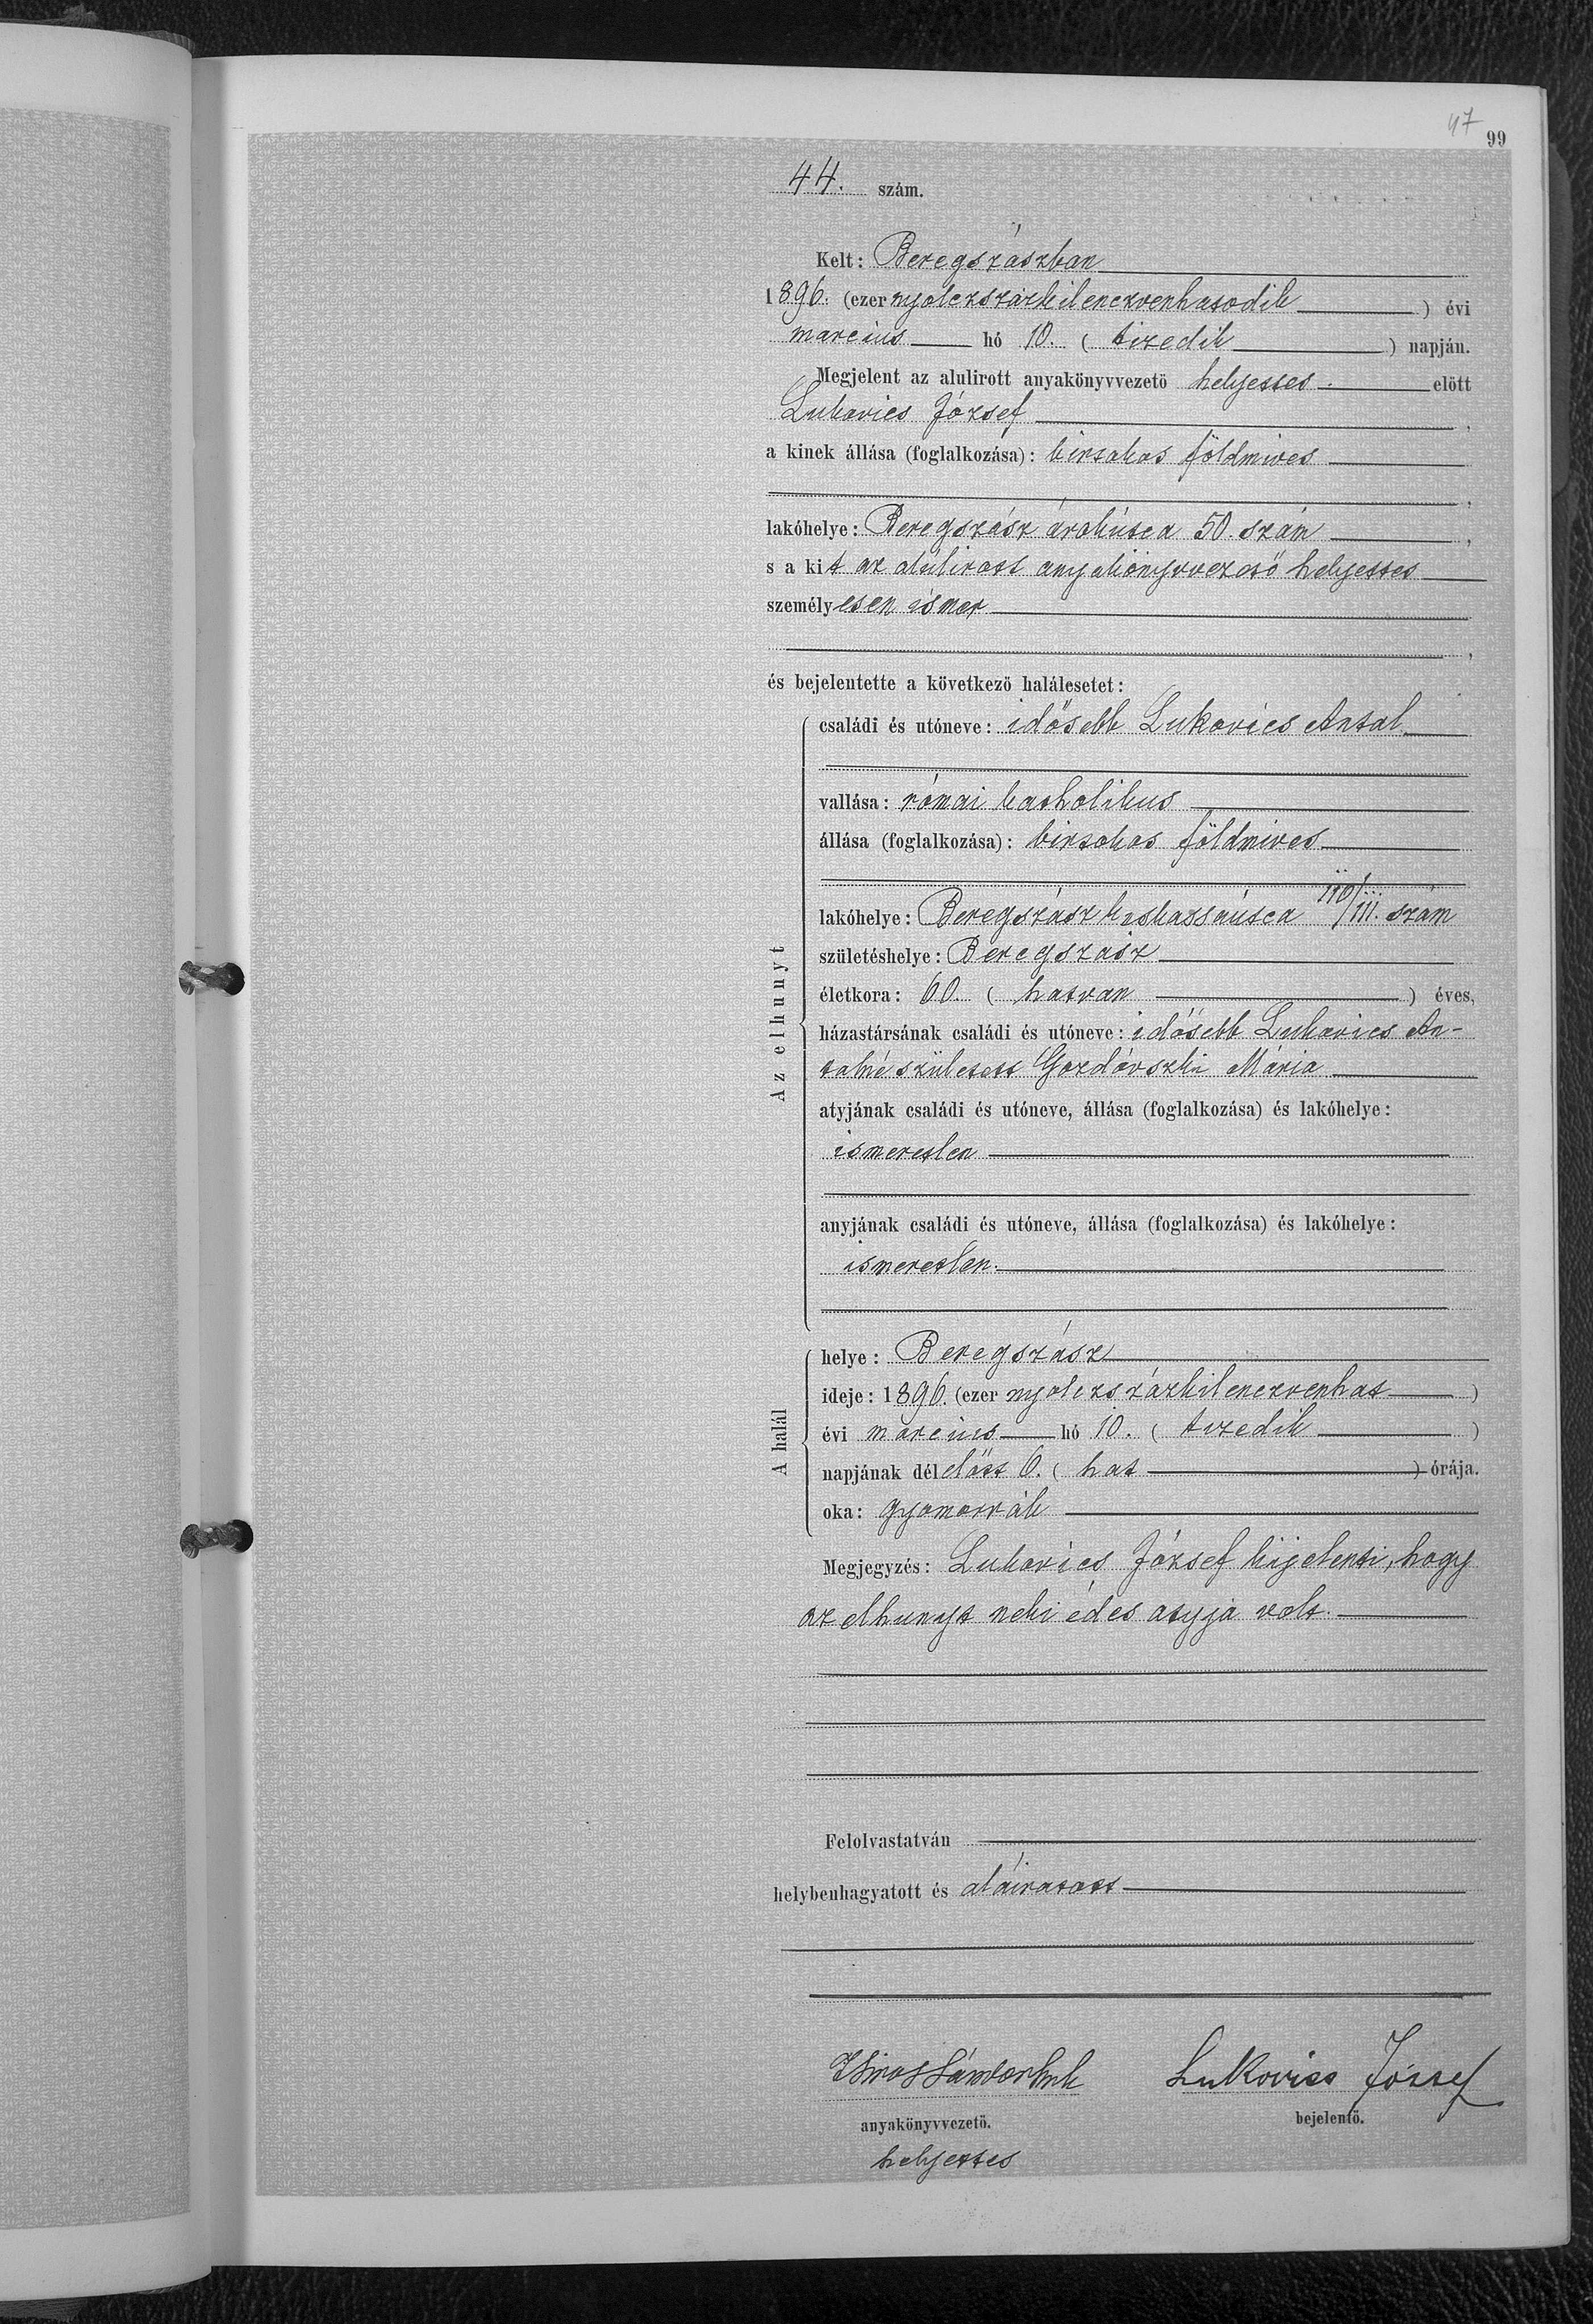 47
99
44. szám.
Kelt: Beregszászban
1896. (ezer nyolczszázkilenczvenhatodik) évi
marczius hó 10. (tizedik) napján.
Megjelent az alulirott anyakönyvvezetö helyettes elött
Lukovics József,
a kinek állása (foglalkozása): birtokos földmives
,
lakóhelye: Beregszász árokútcza 50. szám,
s a kit az alúlirott anyakönyvvezető helyettes
személyesen ismer
,
és bejelentette a következö halálesetet:
Az elhunyt
családi és utóneve: idősebb Lukovics Antal
vallása: római katholikus
állása (foglalkozása): birtokos földmives
lakóhelye: Beregszász 110/III. szám
születéshelye: Beregszász
életkora: 60. (hatvan) éves,
házastársának családi és utóneve: idősebb Lukovics An-
talné született Gozdóvszki Mária
atyjának családi és utóneve, állása (foglalkozása) és lakóhelye:
ismeretlen
anyjának családi és utóneve, állása (foglalkozása) és lakóhelye:
ismeretlen.
A halál
helye: Beregszász
ideje: 1896. (ezer nyolczszázkilenczvenhat)
évi marczius hó 10. (tizedik)
napjának délelőtt 6. (hat) órája.
oka: gyomorrák
Megjegyzés: Lukovics József kijelenti, hogy
az elhunyt neki édes atyja volt.
Felolvastatván
helybenhagyatott és aláiratott
Lukovics József
anyakönyvvezetö.
bejelentö.
helyettes